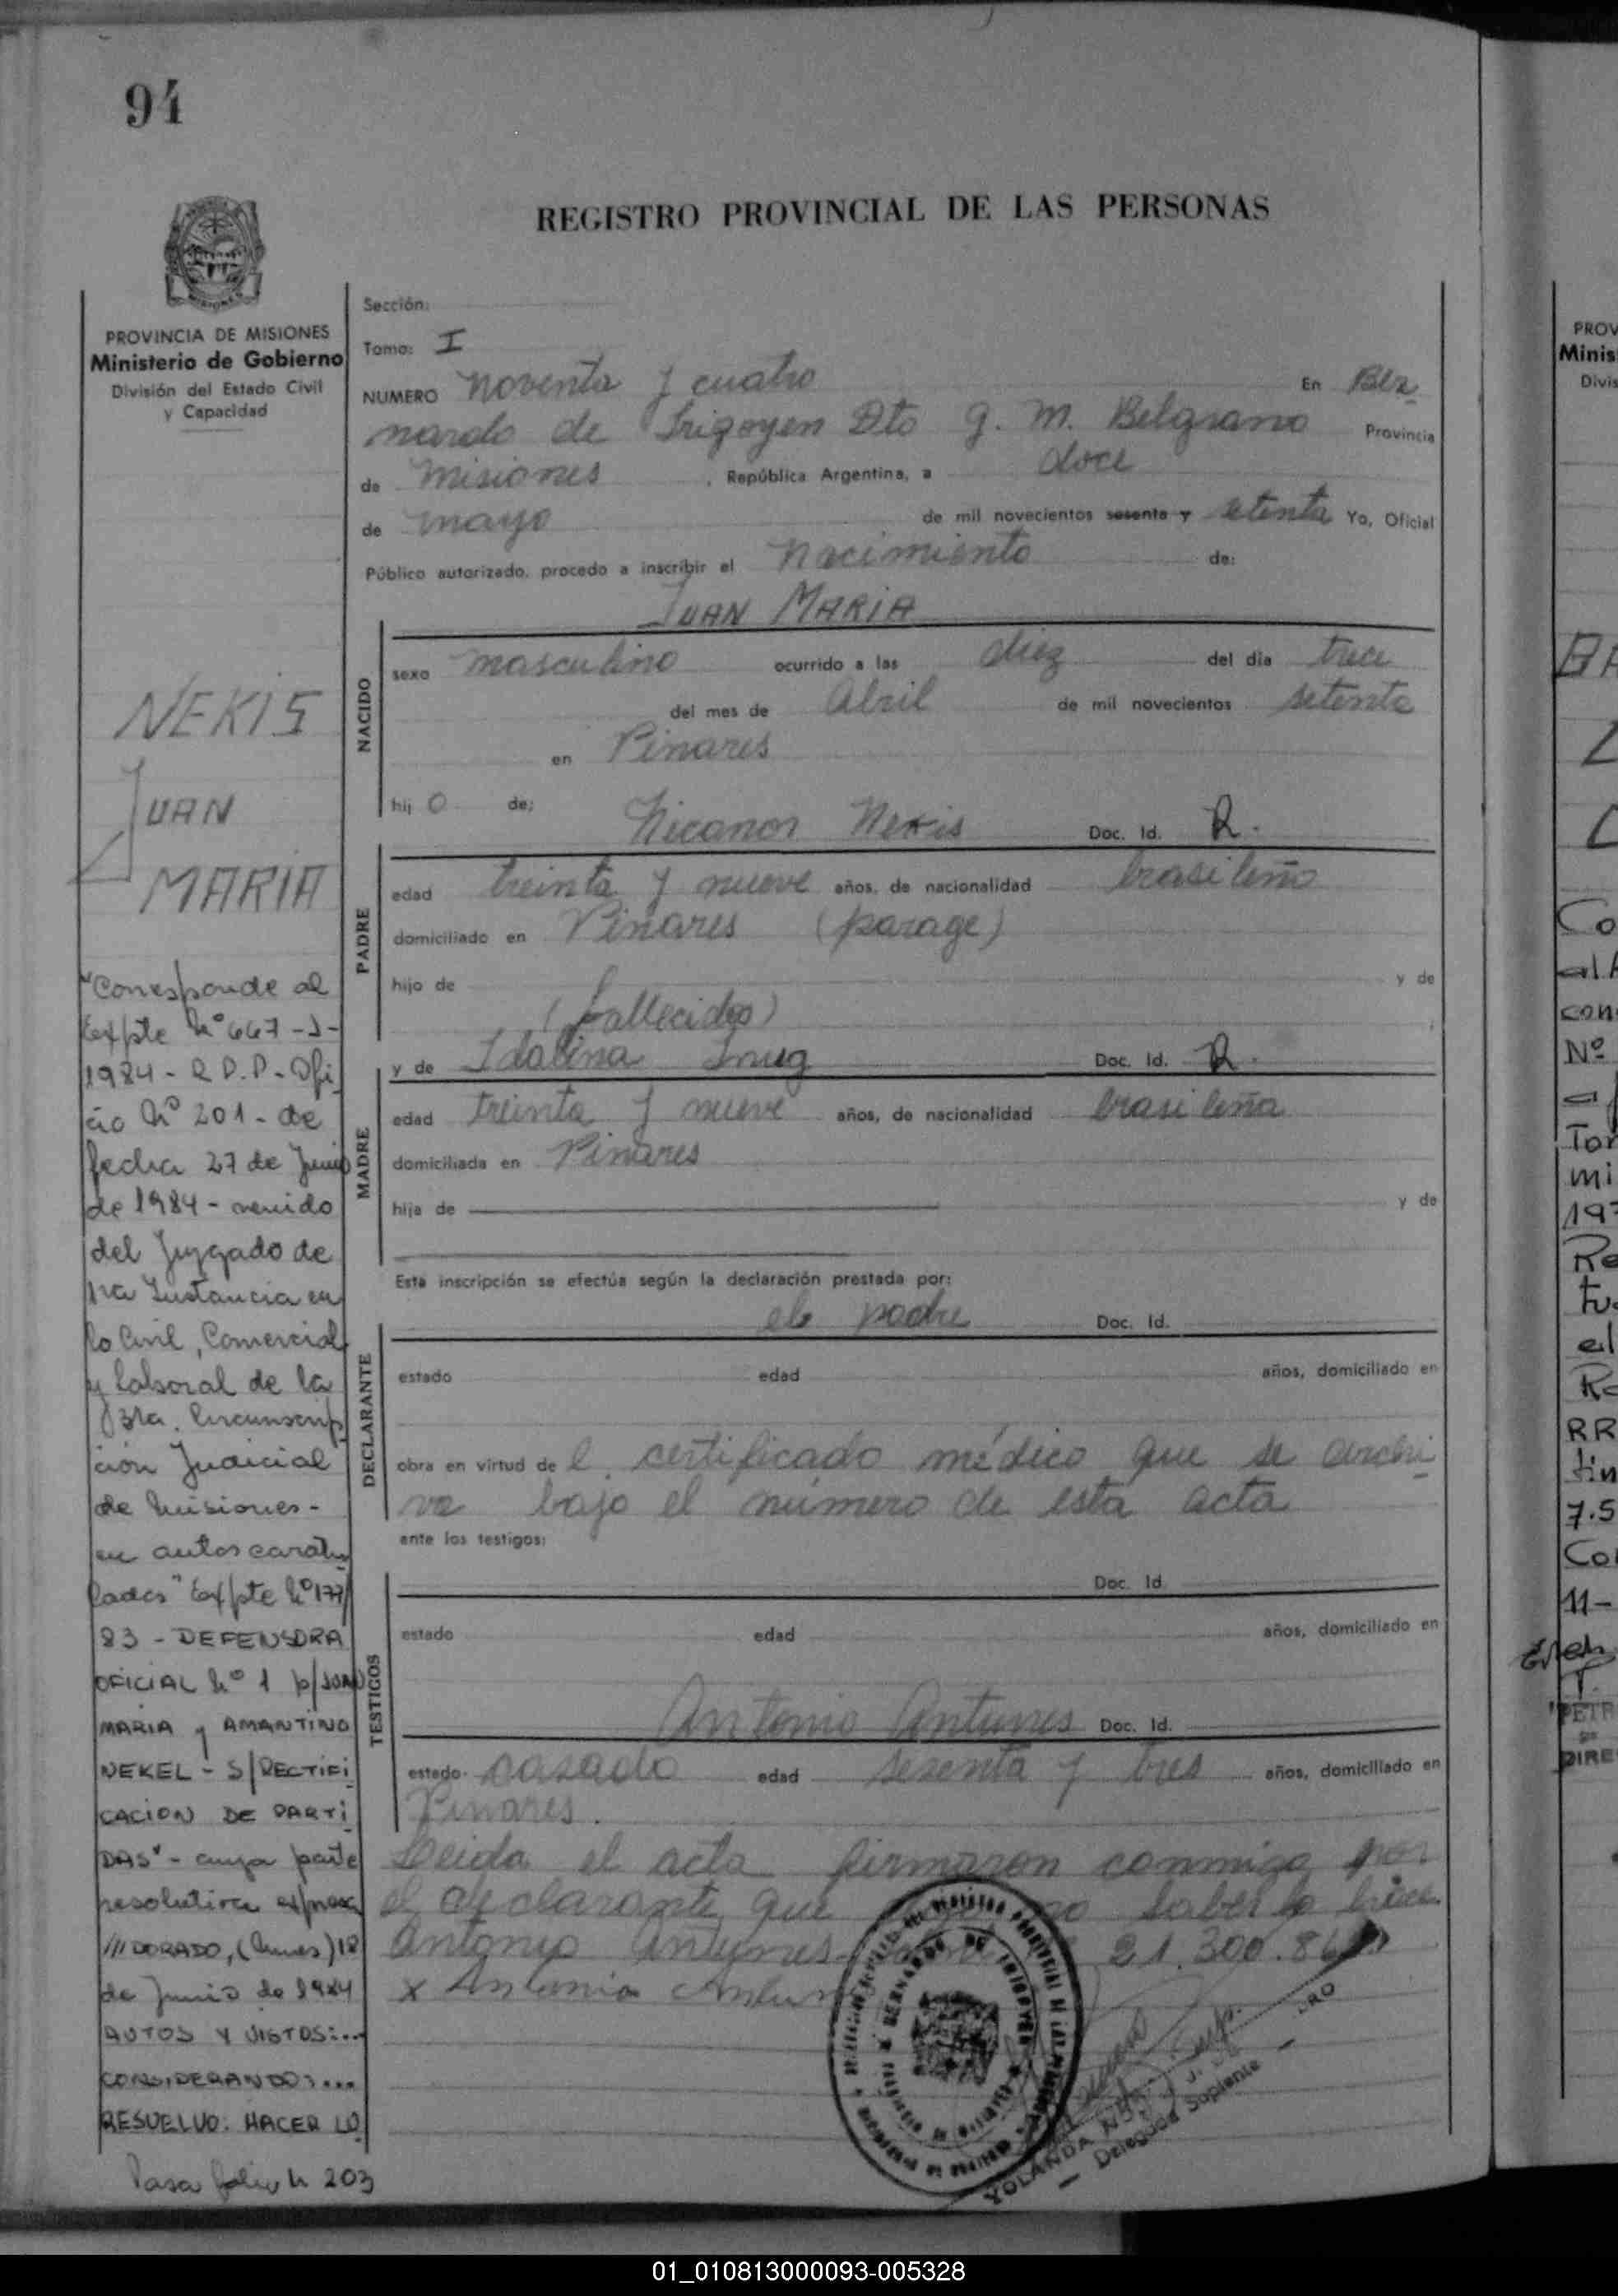 94
REGISTRO PROVINCIAL DE LAS PERSONAS
PROVINCIA DE MISIONES
Ministerio de Gobierno
División del Estado Civil
y Capacidad
NEKIS
JUAN
MARIA
"Corresponde al
Expte Nº 667-J-
1984 - R.P.P - Ofi
cio Nº 201 - de
fecha 27 de Junio
de 1984 - venido
del Juzgado de
1ra Instancia en
lo Civil, Comercial
y Laboral de la
3ra. Circunscrip
ción Judicial
de Misiones -
en autos caratu
lados "Expte Nº 177/
83 - DEFENSORA
OFICIAL Nº 1 p/JUAN
MARIA y AMANTINO
NEKEL - S/RECTIFI
CACION DE PARTI
DAS" - cuya parte
resolutiva expresa
///DORADO, (Mnes) 18
de Junio de 1984
AUTOS Y VISTOS:...
CONSIDERANDO:...
RESUELVO: HACER LO
Pasa folio Nº 203
Sección:
Tomo: I
NUMERO noventa y cuatro En Ber
nardo de Irigoyen Dto g. M. Belgrano Provincia
de Misiones, República Argentina, a doce
de mayo de mil novecientos sesenta y setenta Yo, Oficial
Público autorizado, procedo a inscribir el Nacimiento de:
JUAN MARIA
NACIDO
sexo masculino ocurrido a las diez del día trece
del mes de Abril de mil novecientos setenta
en Pinares
hij o de: Nicanor Nekis Doc. Id. R.
PADRE
edad treinta y nueve años, de nacionalidad brasileño
domiciliado en Pinares (parage)
hijo de y de
(fallecidos)
y de Idalina Doc. Id. R.
MADRE
edad treinta y nueve años, de nacionalidad brasileña
domiciliada en Pinares
hija de y de
Esta inscripción se efectúa según la declaración prestada por:
el padre Doc. Id.
DECLARANTE
estado edad años, domiciliado en
obra en virtud de l certificado médico que se archi
va bajo el número de esta acta
ante los testigos:
TESTIGOS
Doc. Id
estado edad años, domiciliado en
Antonio Antunes Doc. Id.
estado casado edad sesenta y tres años, domiciliado en
Pinares.
Leida el acta firmaron conmigo por
el declarante que no saber lo hace
Antonio Antunes 21.300.86
x Antonio
YOLANDA
Delegada Suplente
PROV
Minis
Divis
Co
al
con
Nº
Tor
mi
197
Re
tu
el
RR
tin
7.5
Col
11-
PETR
DIRE
01_010813000093-005328